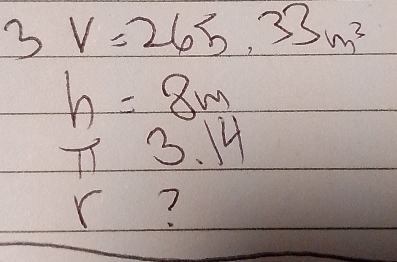 3 V=265.33m³
h = 8m
π 3.14
r ?